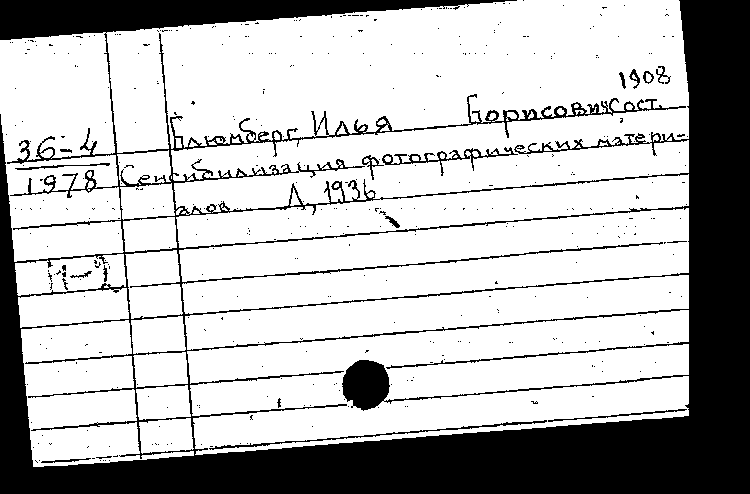 1908
Блюмберг, Илья Борисович, сост.
36-4
1978
Сенсибилизация фотографических матери-
алов. Л, 1936